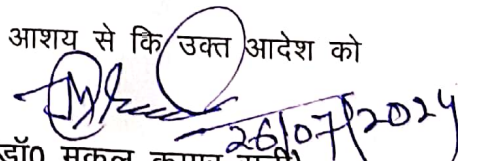 आशय से कि उक्त आदेश को
26/07/2024
डॉ0 मुकुल कुमार